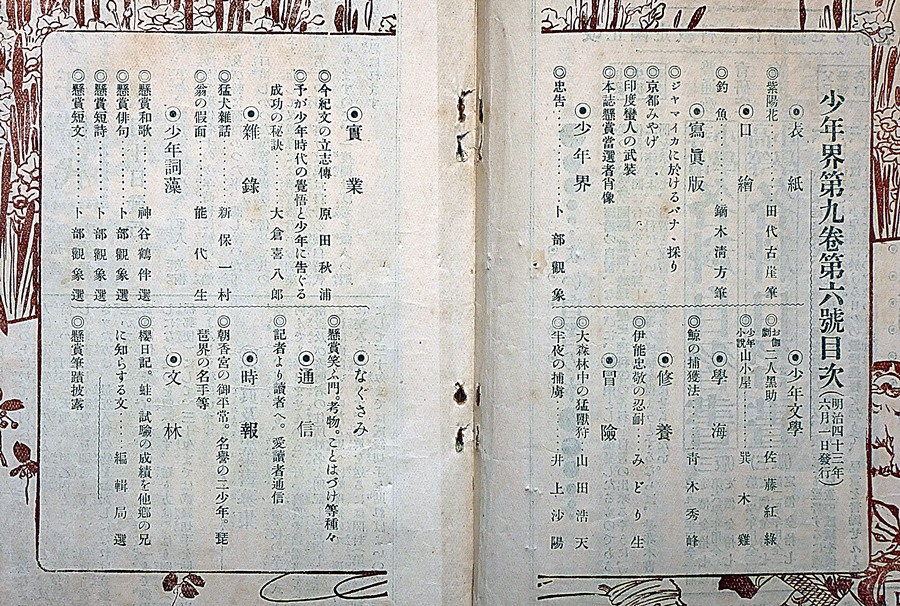 少年界第九卷第六號目次(明治四十三年六月一日發行)
◉表紙
◎紫陽花……田代古崖筆
◉口繪
◎釣魚……鏑木淸方筆
◉寫眞版
◎ジヤマイカに於けるバナヽ採り
◎京都みやげ
◎印度蠻人の武裝
◎本誌懸賞當選者肖像
◉少年界
◎忠告……卜部觀象
◉少年文學
◎お伽劇二人黑助…佐藤紅綠
◎少年小說山小屋……巽木雞
◉學海
◎鯨の捕獲法……靑木秀峰
◉修養
◎伊能忠敬の忍耐…みどり生
◉冒險
◎大森林中の猛獸狩…山田浩天
◎半夜の捕虜……井上沙陽
◉實業
◎今紀文の立志傳…原田秋浦
◎予が少年時代の覺悟と少年に吿ぐる
成功の秘訣……大倉喜八郎
◉雜錄
◎猛犬雜話……新保一村
◎翁の假面……能代生
◉少年詞藻
◎懸賞和歌……神谷鶴伴選
◎懸賞俳句……卜部觀象選
◎懸賞短詩……卜部觀象選
◎懸賞短文……卜部觀象選
◉なぐさみ
◎懸賞笑ふ門。考物。ことばづけ等種々
◉通信
◎記者より讀者へ。愛讀者通信
◉時報
◎朝香宮の御平常。名譽の二少年。琵
琶界の名手等
◉文林
◎櫻日記。蛙。試驗の成績を他鄕の兄
に知らする文……編輯局選
◎懸賞筆蹟披露